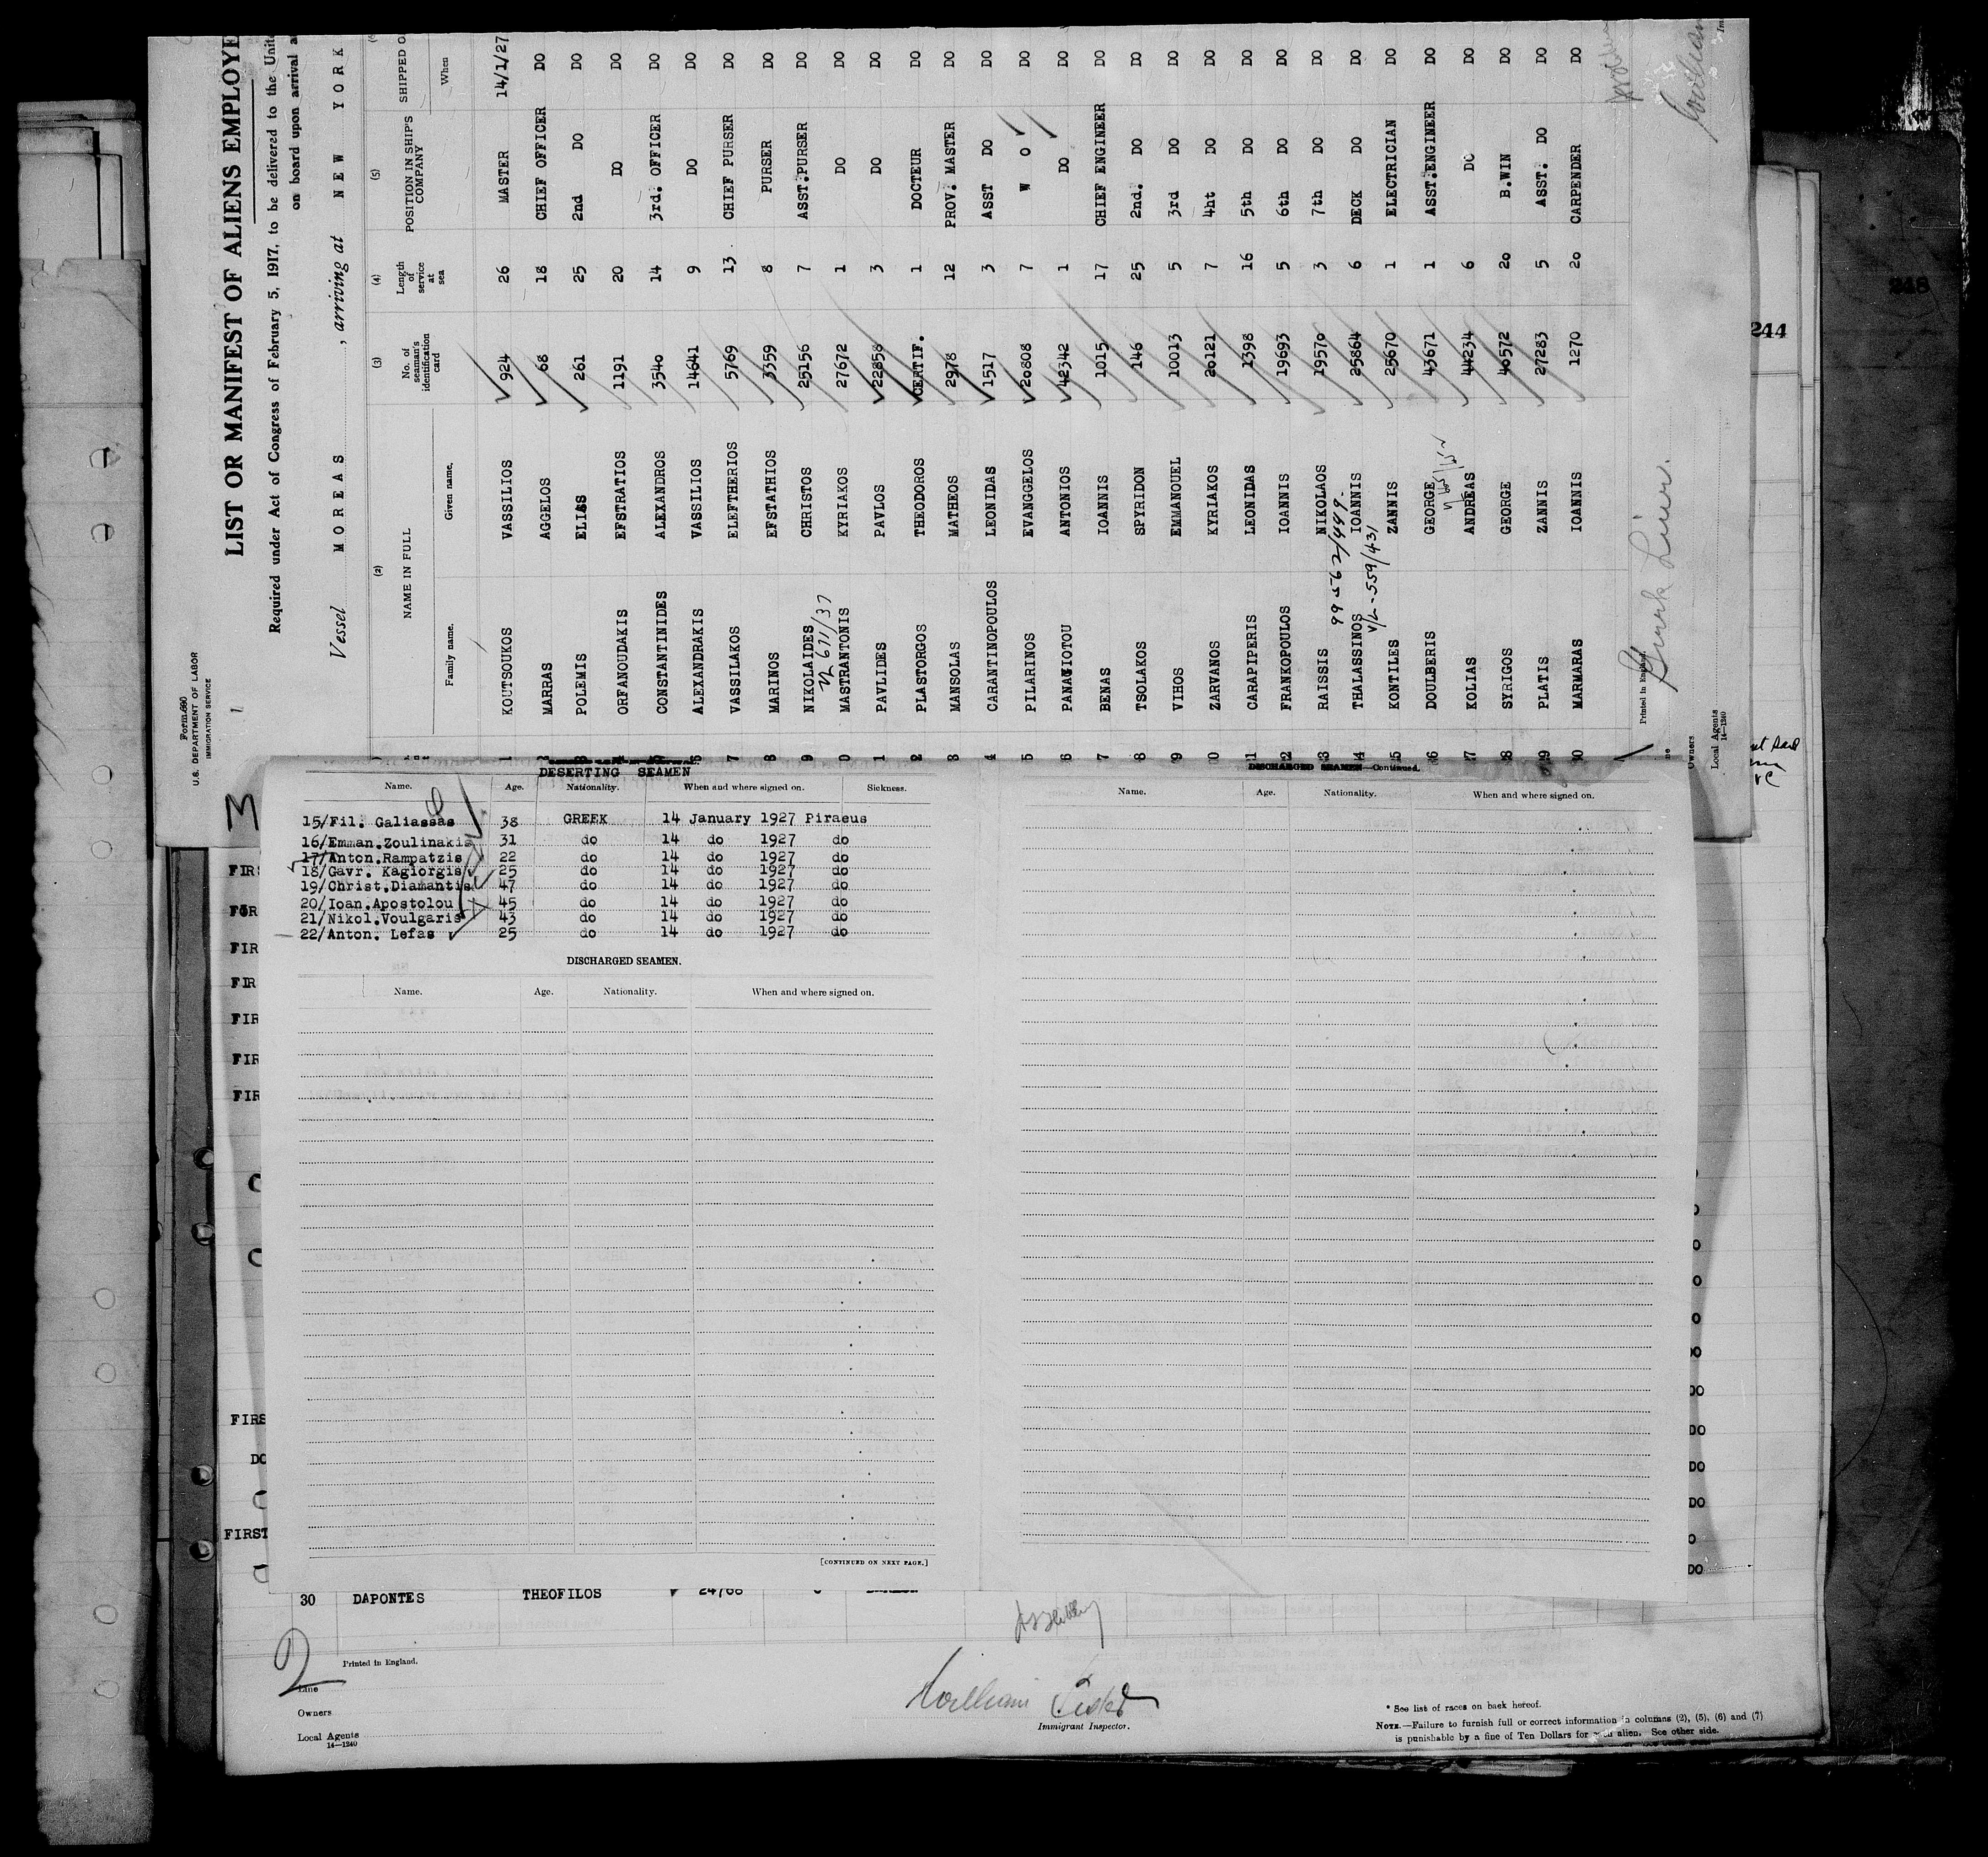 Form 680
U.S. DEPARTMENT OF LABOR
IMMIGRATION SERVICE
LIST OR MANIFEST OF ALIENS EMPLOYE
Required under Act of Congress of February 5, 1917, to be delivered to the Unit
on board upon arrival
Vessel MOREAS, arriving at NEW YORK
(2) (3) (4) (5)
NAME IN FULL No. of seaman's identification card Length of service at sea POSITION IN SHIP'S COMPANY SHIPPED O
Family name. Given name. When
1 KOUTSOUKOS VASSILIOS 924 26 MASTER 14/1/27
2 MARRAS AGGELOS 68 18 CHIEF OFFICER DO
3 POLEMIS ELIAS 261 25 2nd DO DO
4 ORFANOUDAKIS EFSTRATIOS 1191 20 DO DO
5 CONSTANTINIDES ALEXANDROS 3540 14 3rd. OFFICER DO
6 ALEXANDRAKIS VASSILIOS 14641 9 DO DO
7 VASSILAKOS ELEFTHERIOS 5769 13 CHIEF PURSER DO
8 MARINOS EFSTATHIOS 3359 8 PURSER DO
9 NIKOLAIDES CHRISTOS 25156 7 ASST.PURSER DO
671/37
0 MASTRANTONIS KYRIAKOS 27672 1 DO DO
1 PAVLIDES PAVLOS 22858 3 DO DO
2 PLASTORGOS THEODOROS CERTIF. 1 DOCTEUR DO
3 MANSOLAS MATHEOS 2978 12 PROV. MASTER DO
4 CARANTINOPOULOS LEONIDAS 1517 3 ASST DO DO
5 PILARINOS EVANGGELOS 20808 7 W O DO
6 PANAGIOTOU ANTONIOS 42342 1 DO DO
7 BENAS IOANNIS 1015 17 CHIEF ENGINEER DO
8 TSOLAKOS SPYRIDON 146 25 2nd. DO DO
9 VIHOS EMMANOUEL 10013 5 3rd DO DO
0 ZARVANOS KYRIAKOS 20121 7 4ht DO DO
1 CARAPIPERIS LEONIDAS 1398 16 5th DO DO
2 FRANKOPOULOS IOANNIS 19693 5 6th DO DO
3 RAISSIS NIKOLAOS 19570 3 7th DO DO
99-562/449-
4 THALASSINOS IOANNIS 25864 6 DECK DO DO
V/L-559/431
5 KONTILES ZANNIS 25670 1 ELECTRICIAN DO
6 DOULBERIS GEORGE 43671 1 ASST.ENGINEER DO
7 KOLIAS ANDREAS 44234 6 DO DO
8 SYRIGOS GEORGE 40572 20 B.WIN DO
9 PLATIS ZANNIS 27283 5 ASST. DO DO
0 MARMARAS IOANNIS 1270 20 CARPENDER DO
Printed in England.
Greek Line.
Owners
Local Agents
14—1240
William
244
248
DESERTING SEAMEN
Name. Age. Nationality. When and where signed on. Sickness.
15/Fil. Galiassas 38 GREEK 14 January 1927 Piraeus
16/Emman.Zoulinakis 31 do 14 do 1927 do
17/Anton.Rampatzis 22 do 14 do 1927 do
18/Gavr. Kagiorgis 25 do 14 do 1927 do
19/Christ.Diamantis 47 do 14 do 1927 do
20/Ioan.Apostolou 45 do 14 do 1927 do
21/Nikol.Voulgaris 43 do 14 do 1927 do
22/Anton. Lefas 25 do 14 do 1927 do
DISCHARGED SEAMEN.
Name. Age. Nationality. When and where signed on.
[CONTINUED ON NEXT PAGE.]
DISCHARGED SEAMEN—Continued.
Name. Age. Nationality. When and where signed on.
M
FIR
FOR
FIR
FIR
FIR
FIR
FIR
FIRS
DO
FIRST
30 DAPONTES THEOFILOS
2
Printed in England.
Line
Owners
Local Agents
14—1240
William
Immigrant Inspector.
* See list of races on back hereof.
NOTE.—Failure to furnish full or correct information in columns (2), (5), (6) and (7)
is punishable by a fine of Ten Dollars for each alien. See other side.